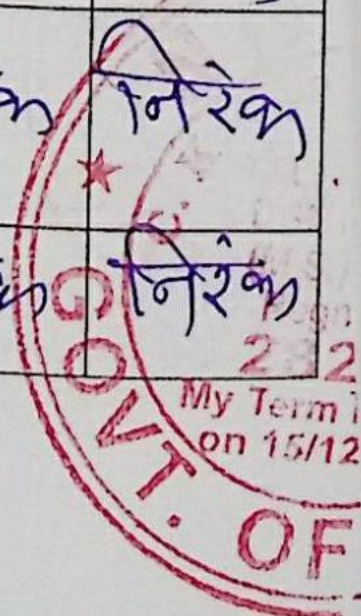 निरंक
निरंक
My Term
on 15/12
GOVT. OF